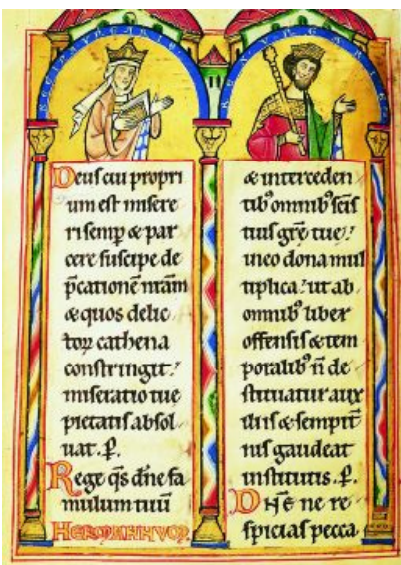 REX VNGARIE
Deus cui propri
um est misere
ri semp̄ & par
cere suscipe de
p̄cationē nr̄am
& quos delic
torꝝ cathena
constringit.
miseratio tue
pietatis absol
uat. P̄.
Rege q̄s dn̄e fa
mulum tuū
HERMANNVM
& interceden
tibꝰ omnibꝰ scīs
tuis grē tue
in eo dona mul
tiplica. ut ab
omnibꝰ liber
offensis & tem
poralibꝰ n̄ de
stituatur aux
iliis & sempit̄
nis gaudeat
institutis. P̄.
DN̄E ne re
spicias pecca